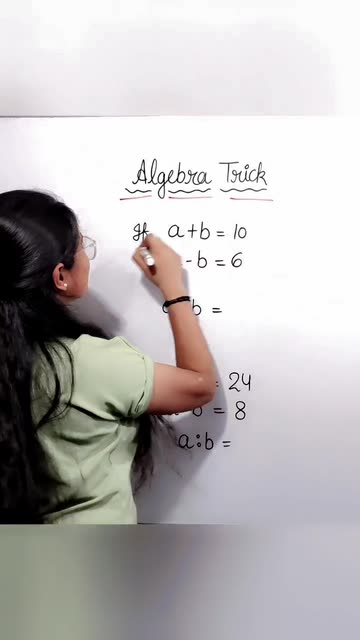 Algebra Trick
If a + b = 10
- b = 6
b =
= 24
b = 8
a : b =